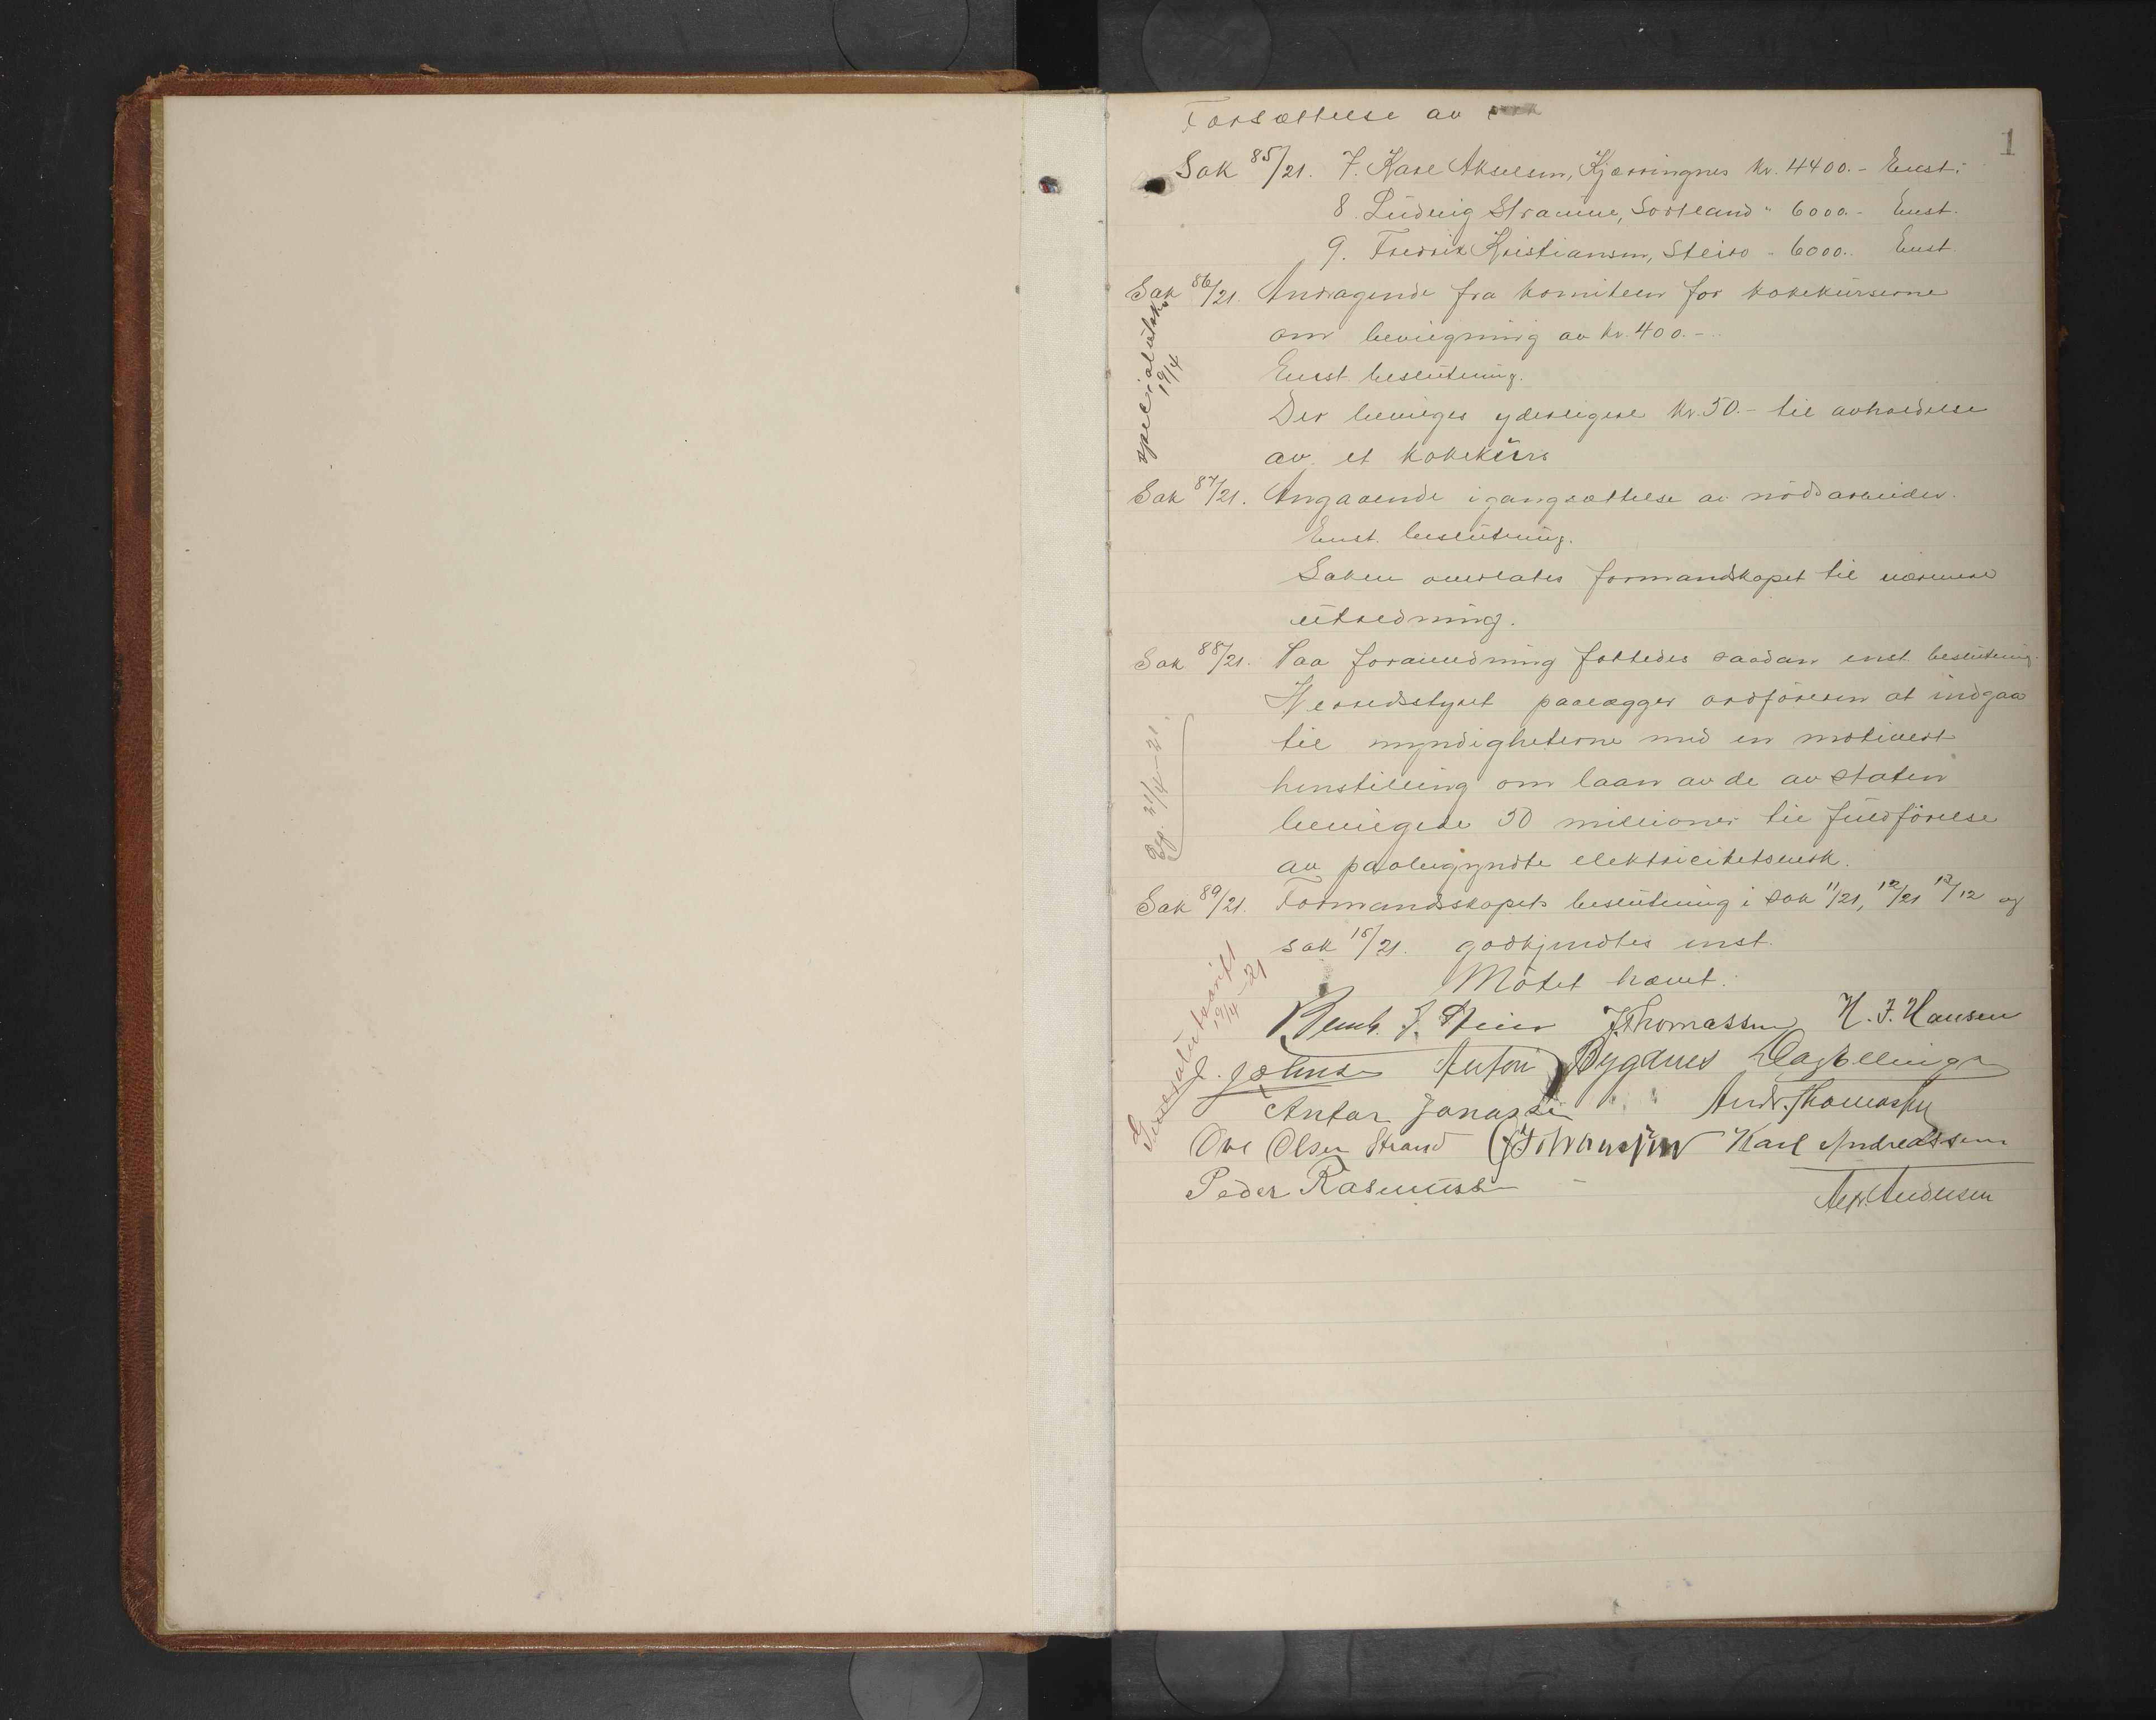 1
Forsættelse av
Sak 85/21. 7. Karl Akselsen, Kjærringnes kr. 4400.- Enst.
8. Ludvig Stramme, Sortland " 6000.- Enst.
9. Fredrik Kristiansen, Steiro " 6000.- Enst.
Sak 86/21. Andragende fra komiteen for kokekurserne
om bevilgning av kr. 400.-
Enst. beslutning.
Der bevilges yderligere kr. 50.- til avholdelse
av et kokekurs
Specialutskr. 19/4
Sak 87/21. Angaaende igangsættelse av nödsarbeider.
Enst. beslutning.
Saken overlates formandskapet til nærmere
utredning.
Sak 88/21. Paa foranledning fattedes saadan enst. beslutning.
Herredsstyret paalægger ordföreren at indgaa
til myndigheterne med en motivert
henstilling om laan av de av staten
bevilgede 50 millioner til fuldförelse
av paabegyndte elektricitetsverk.
21/4-21.
Sak 89/21. Formandsskapets beslutning i sak 11/21, 12/21 13/12 og
sak 15/21. godkjendtes enst.
Mötet hævet.
utskrift
19/4-21
J. Thomassen H. J. Hansen
J. Johnsen Anton Bygdnes Dag Ellingsen
Antar Jonassen Andr. Thomassen
Ove Olsen Strand Johansen Karl Andreassen
Peder Rasmussen
Alf. Andersen